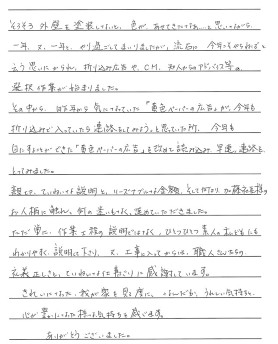 そろそろ外壁を塗装しないと、色が、あせてきたなぁ…と思いながら、
一年、又、一年と、のり過ごしてまいりましたが、流石に今年こそやらねばと
云う思いにかられ、折り込み広告や、CM、知人からのアドバイス等、
選択作業が始まりました。
その中から、昨年から気になっていた「黄色ペーパーの広告」が、今年も
折り込みで入っていたら連絡をしてみようと思っていた所、今年も
目にすることができた「黄色ペーパーの広告」を改めて読み込み、早速、連絡を
とってみました。
親切で、ていねいな説明と、リーズナブルな金額、そして何より、加藤社長様の
お人柄に触れ、何の迷いもなく、進めていただきました。
ただ単に、作業工程の説明ではなく、ひとつひとつ素人の私どもにも
わかりやすく、説明して下さり、又、工事に入ってからは、職人さんたちの
礼義正しさと、ていねいな仕事ぶりに感謝しています。
きれいになった、我が家を見る度に、なんだか、うれしい気持ちと、
心が豊かになった様な気持ちを感じます。
ありがとうございました。